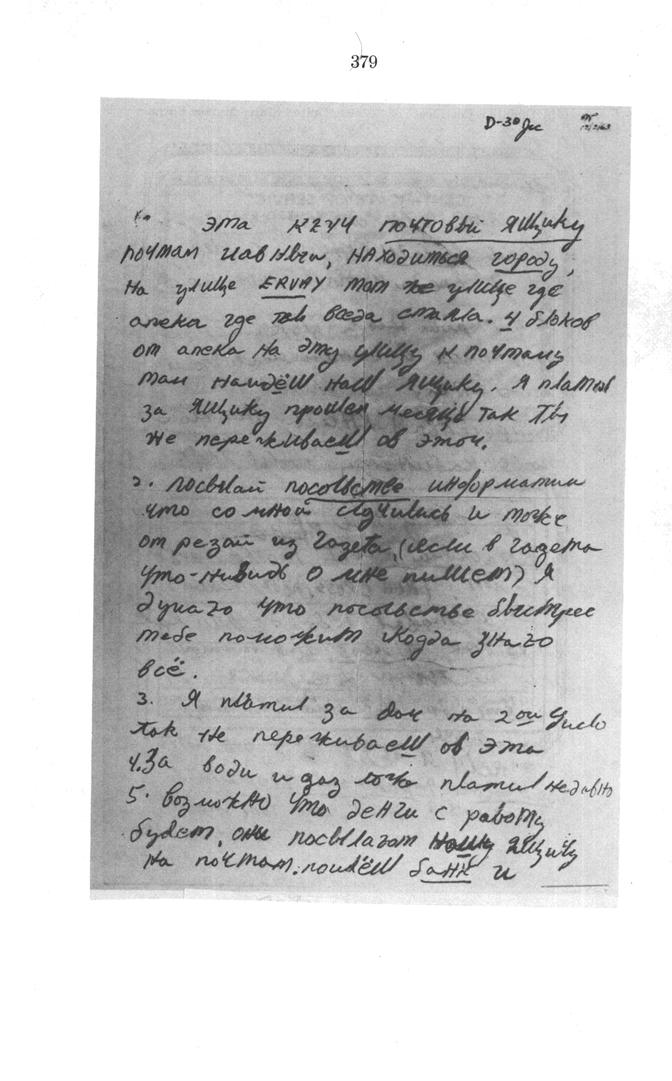 379
D-30
1. эта ключ почтовый ящику
почтам главнвги, находиться городу,
на улице ERVAY том же улице где
апека где всегда стаяла. 4 блоков
от апека на эту улицу к почтаму
там наидёш наш ящику. я платил
за ящику прошен месяце так ты
же переживаеш об этом.
2. посылай посольстве информатии
что со мной случились и тоже
отрезай из газета, (если в газета
что-нибидь о мне пишет) я
думаю что посольстве быстрее
тебе поможит когда знаю
всё.
3. я платил за дом на 2 ои число
так не переживаеш об эта
4. За води и газ тоже платил недавно
5. возможно что денги с работу
будет, они посылагат нашу ящику
на почтам. поидёш банк и